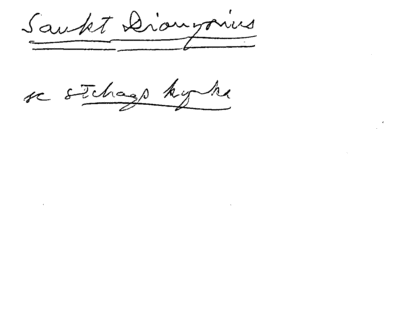 Sankt Dionysius
se Stehags kyrka